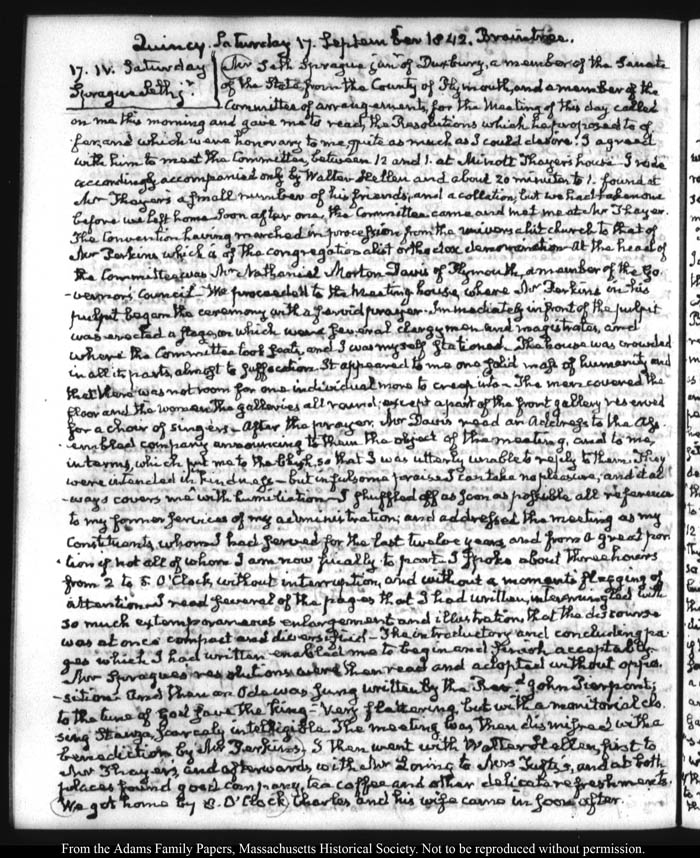 Quincy. Saturday 17. September 1842. Braintree.
17. IV. Saturday
Sprague Seth jr.
Mr Seth Sprague junr of Duxbury, a member of the Senate
of the State from the County of Plymouth, and a member of the
Committee of arrangements, for the Meeting of this day called
on me this morning and gave me to read, the Resolutions which he proposed to of-
fer, and which were honorary to me quite as much as I could desire. I agreed
with him to meet the Committee, between 12 and 1. at Minott Thayer's house. I rode
accordingly accompanied only by Walter Hellen and about 20 minutes to 1. found at
Mr Thayer's a small number of his friends, and a collation, but we had taken one
before we left home. Soon after one, the Committee came and met me at Mr Thayer.
The Convention having marched in procession from the universalist church to that of
Mr Perkins which is of the congregationalist orthodox denomination. At the head of
the Committee was Mr Nathaniel Morton Davis of Plymouth, a member of the Go-
-vernor's Council— We proceeded to the Meeting house, where Mr Perkins in his
pulpit began the ceremony with a fervid prayer. Immediately in front of the pulpit
was erected a stage, on which were several clergymen and magistrates, and
where the Committee took seats, and I was myself stationed. The house was crowded
in all its parts, almost to suffocation. It appeared to me one solid mass of humanity and
that there was not room for one individual more to creep in— The men covered the
floor and the women the galleries all round, except a part of the front gallery reserved
for a choir of singers— After the prayer, Mr Davis read an Address to the Ass
-embled company announcing to them the object of the meeting, and to me,
in terms, which put me to the blush, so that I was utterly unable to reply to them. They
were intended in kindness— but in fulsome praise I can take no pleasure, and it al-
-ways covers me with humiliation— I shuffled off as soon as possible all reference
to my former services of my administration; and addressed the meeting as my
Constituents, whom I had served for the last twelve years, and from a great por
tion if not all of whom I am now finally to part— I spoke about three hours
from 2 to 5 O'Clock without interruption, and without a moment's flagging of
attention. I read several of the pages that I had written, intermingled with
so much extemporaneous enlargement and illustration, that the discourse
was at once compact and diversified— The introductory and concluding pa-
ges which I had written enabled me to begin and finish acceptably.
Mr Sprague's resolutions were then read and adopted without oppo-
-sition— And then an Ode was sung written by the Revd John Pierpont;
to the tune of God save the King— Very flattering, but with a monitorial clo-
sing Stanza, scarcely intelligible. The meeting was then dismissed with a
benediction by Mr Perkins, I then went with Walter Hellen, first to
Mr Thayer's, and afterwards with Mr Loring to Mrs Tufts's, and at both
places found good company, tea coffee and other delicate refreshments.
We got home by 8. O'Clock Charles and his wife came in soon after.
From the Adams Family Papers, Massachusetts Historical Society. Not to be reproduced without permission.